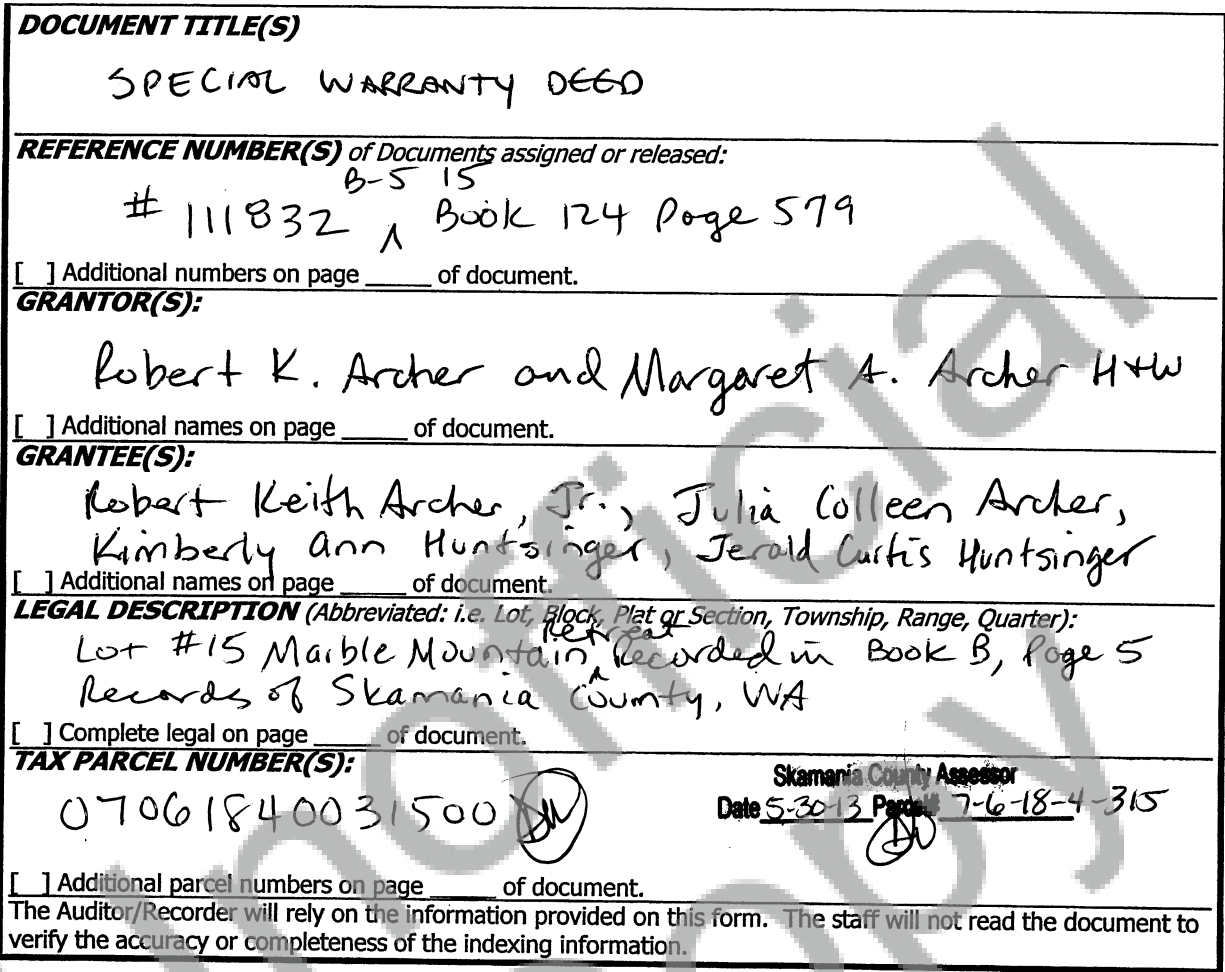 DOCUMENT TITLE(S)
SPECIAL WARRANTY DEED
REFERENCE NUMBER(S) of Documents assigned or released:
B-5 15
# 111832 ^ Book 124 Page 579
[ ] Additional numbers on page _____ of document.
GRANTOR(S):
Robert K. Archer and Margaret A. Archer H+W
[ ] Additional names on page _____ of document.
GRANTEE(S):
Robert Keith Archer, Jr., Julia Colleen Archer,
Kimberly Ann Huntsinger, Jerald Curtis Huntsinger
[ ] Additional names on page _____ of document.
LEGAL DESCRIPTION (Abbreviated: i.e. Lot, Block, Plat or Section, Township, Range, Quarter):
Retreat
Lot #15 Marble Mountain ^ Recorded in Book B, Page 5
Records of Skamania County, WA
[ ] Complete legal on page _____ of document.
TAX PARCEL NUMBER(S):
Skamania County Assessor
07061840031500 DW
Date 5-30-13 Parcel# 7-6-18-4-315
DW
[ ] Additional parcel numbers on page _____ of document.
The Auditor/Recorder will rely on the information provided on this form. The staff will not read the document to
verify the accuracy or completeness of the indexing information.
Unofficial
Copy